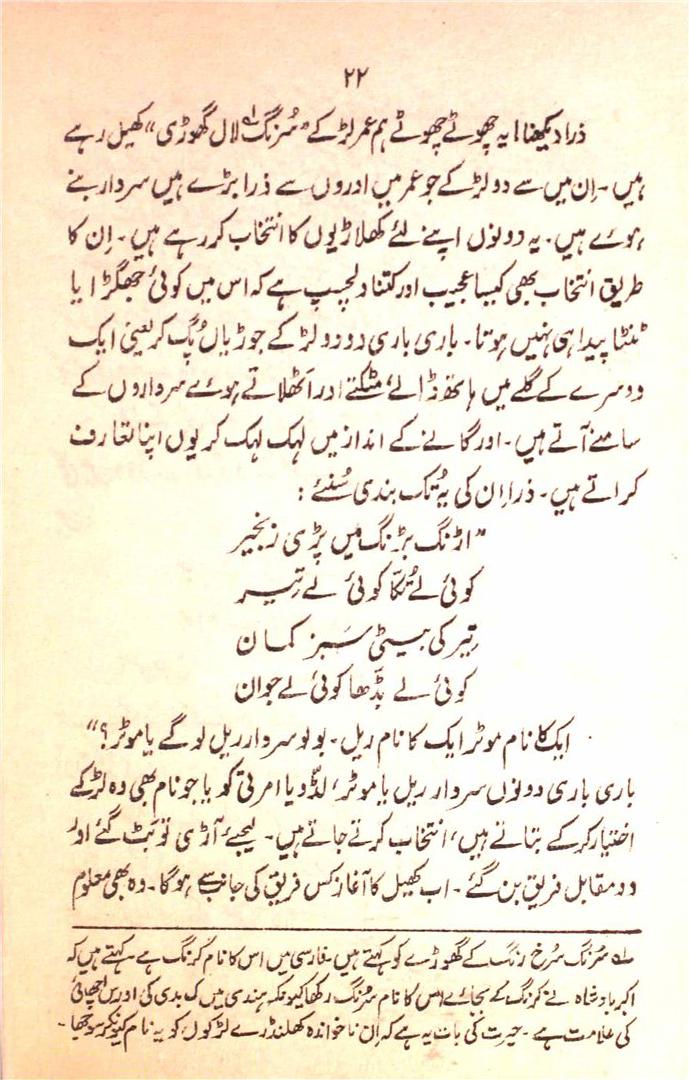 ۲۲
ذرا دیکھنا! یہ چھوٹے چھوٹے ہم عمر لڑکے "سُرنگ لہ لال گھوڑی" کھیل رہے
ہیں۔ اِن میں سے دو لڑکے جو عمر میں اوروں سے ذرا بڑے ہیں سردار بنے
ہوئے ہیں۔ یہ دونوں اپنے لئے کھلاڑیوں کا انتخاب کر رہے ہیں۔ اِن کا
طریق انتخاب بھی کیسا عجیب اور کتنا دلچسپ ہے کہ اس میں کوئی جھگڑا یا
ٹنٹا پیدا ہی نہیں ہوتا۔ باری باری دو دو لڑکے جوڑیاں مُگ کر یعنی ایک
دوسرے کے گلے میں ہاتھ ڈالے، مٹکتے اور اٹھلاتے ہوئے سرداروں کے
سامنے آتے ہیں۔ اور گانے کے انداز میں لہک لہک کر یوں اپنا تعارف
کراتے ہیں۔ ذرا اِن کی یہ تُک بندی سُنئے :
"اڑنگ بڑنگ میں پڑی زنجیر
کوئی لے تُکّا کوئی لے تیر
تیر کی بیٹی سبز کمان
کوئی لے بڈّھا کوئی لے جوان
ایک کا نام موٹر ایک کا نام ریل۔ بولو سردار ریل لو گے یا موٹر؟"
باری باری دونوں سردار ریل یا موٹر، لڈّو یا امرتی کو یا جو نام بھی وہ لڑکے
اختیار کرکے بتاتے ہیں، انتخاب کرتے جاتے ہیں۔ لیجئے آڑی تو بَٹ گئے اور
دو مقابل فریق بن گئے۔ اب کھیل کا آغاز کس فریق کی جانب سے ہوگا۔ وہ بھی معلوم
لہ سُرنگ سُرخ رنگ کے گھوڑے کو کہتے ہیں۔ فارسی میں اس کا نام کُرنگ ہے۔ کہتے ہیں کہ
اکبر بادشاہ نے کُرنگ کے بجائے اس کا نام سُرنگ رکھا کیونکہ ہندی میں ک بدی کی اور س اچھائی
کی علامت ہے۔ حیرت کی بات یہ ہے کہ اِن ناخواندہ کھلنڈرے لڑکوں کو یہ نام کیونکر سوجھا۔